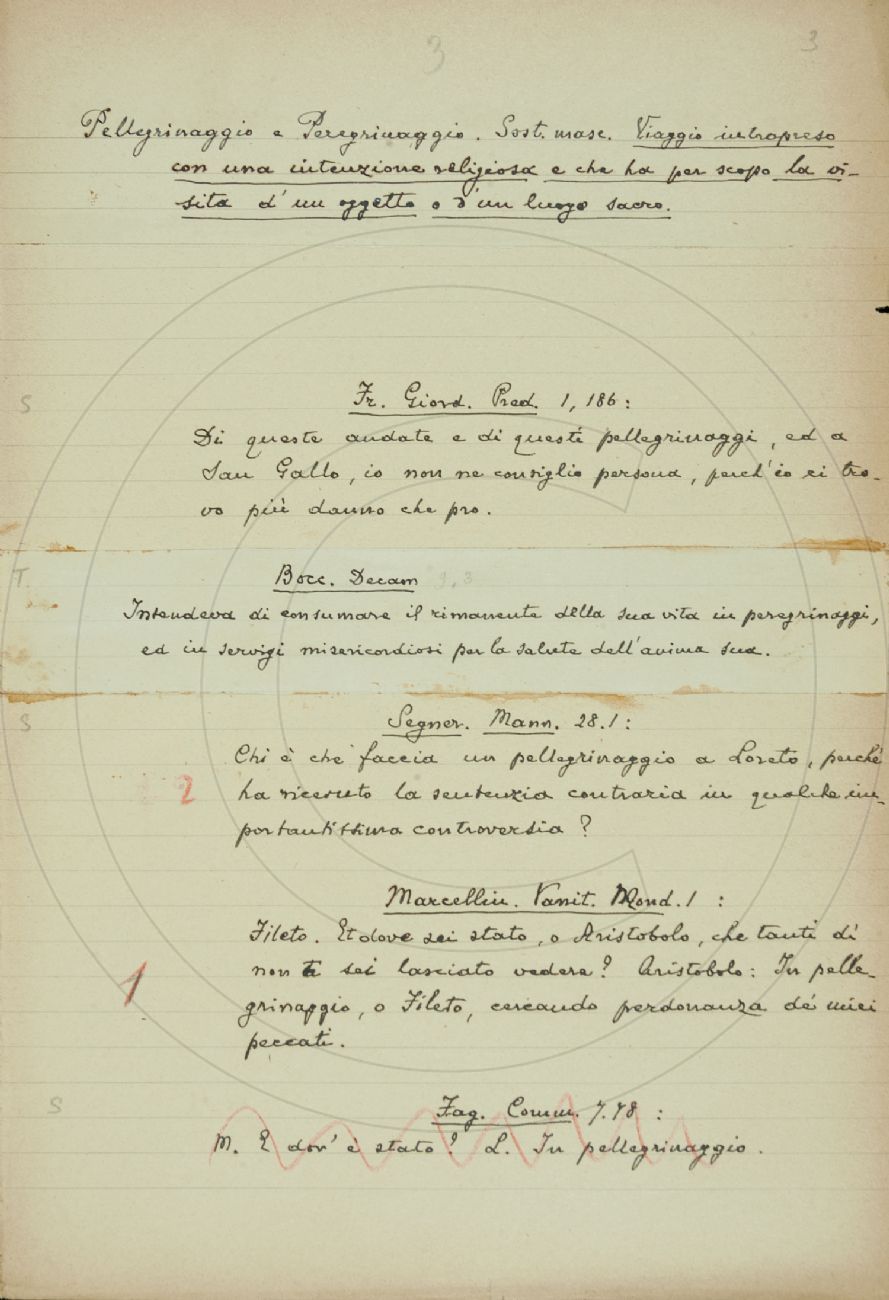 3 3
Pellegrinaggio e Peregrinaggio. Sost. masc. Viaggio intrapreso
con una intenzione religiosa e che ha per scopo la vi-
sita d'un oggetto o d'un luogo sacro.
S
Fr. Giord. Pred. 1, 186:
Di queste andate e di questi pellegrinaggi, ed a
San Gallo, io non ne consiglio persona, perch'io ci tro-
vo più danno che pro.
T.
Bocc. Decam 9,3
Intendeva di consumare il rimanente della sua vita in peregrinaggi,
ed in servigi misericordiosi per la salute dell'anima sua.
S
Segner. Mann. 28.1:
Chi è che faccia un pellegrinaggio a Loreto, perché
2
ha ricevuto la sentenzia contraria in qualche im-
portantissima controversia?
Marcellin. Vanit. Mond. 1:
Fileto. Et dove sei stato, o Aristobolo, che tanti dì
1
non te sei lasciato vedere? Aristobolo: In pelle-
grinaggio, o Fileto, cercando perdonanza de' miei
peccati.
S
Fag. Comm. 7.78:
M. E dov'è stato? L. In pellegrinaggio.